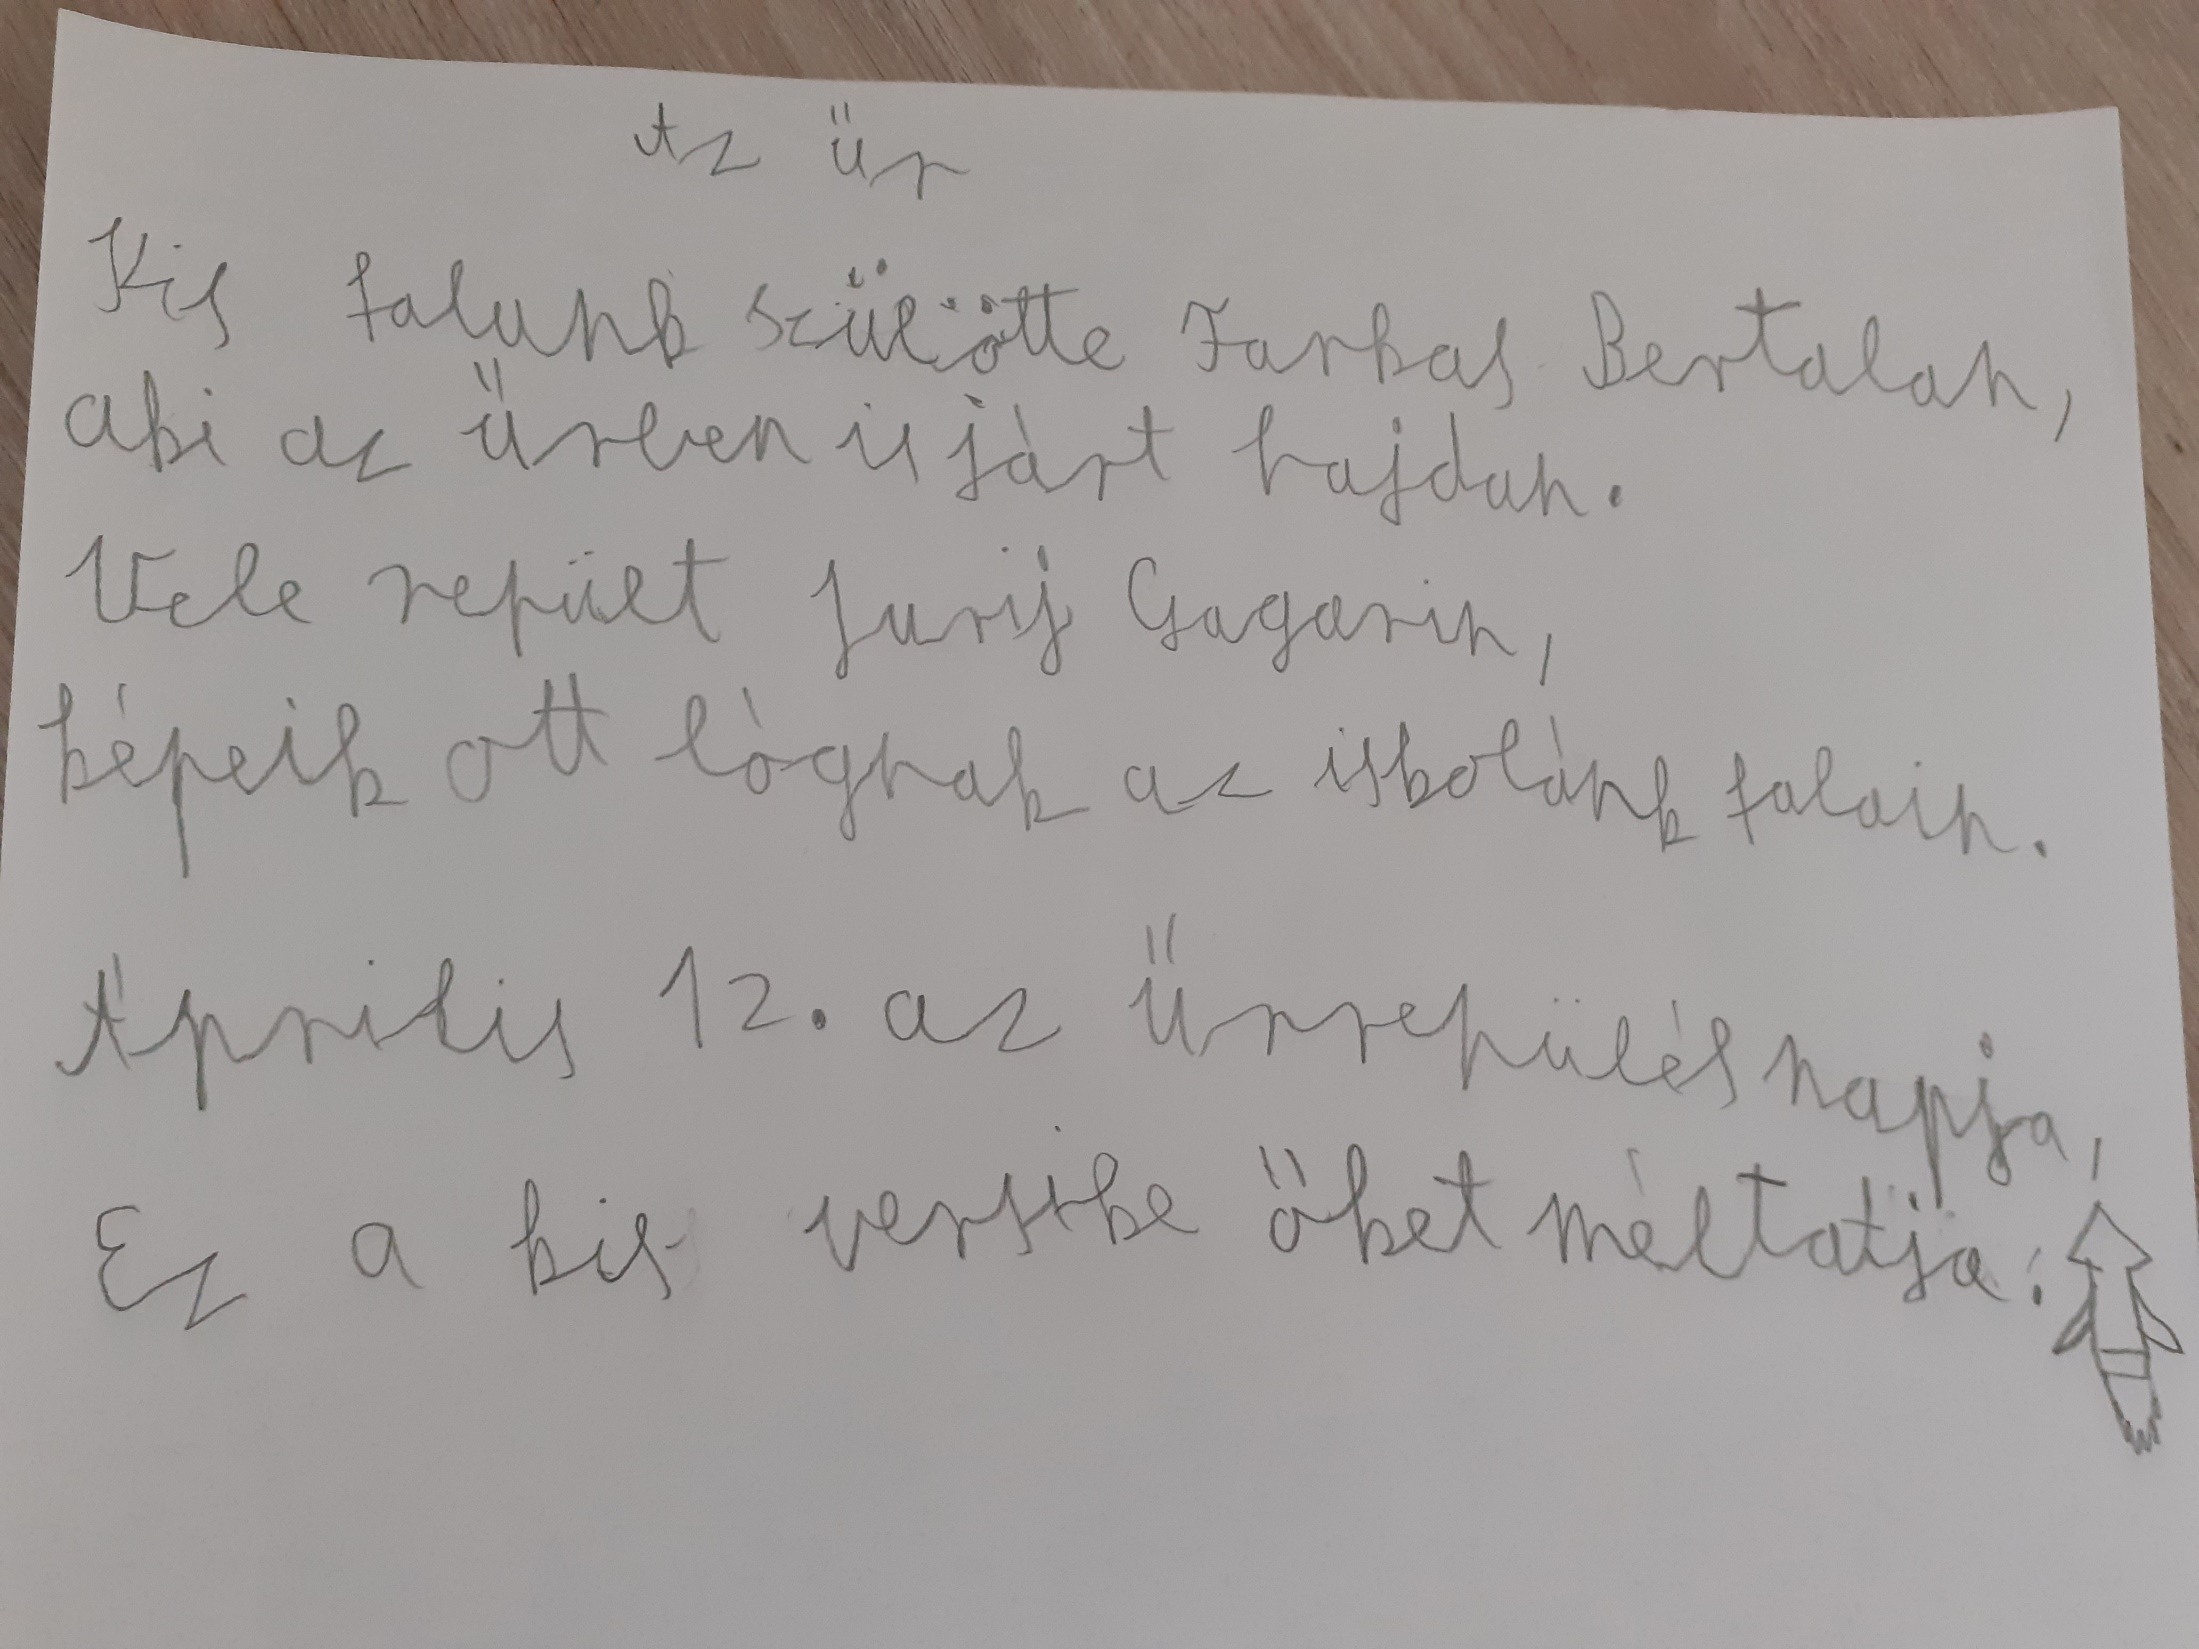 Az űr
Kis falunk szülötte Farkas Bertalan,
aki az űrben is járt hajdan.
Vele repült Jurij Gagarin,
képeik ott lógnak az iskolánk falain.
Április 12. az űrrepülés napja,
Ez a kis versike őket méltatja.